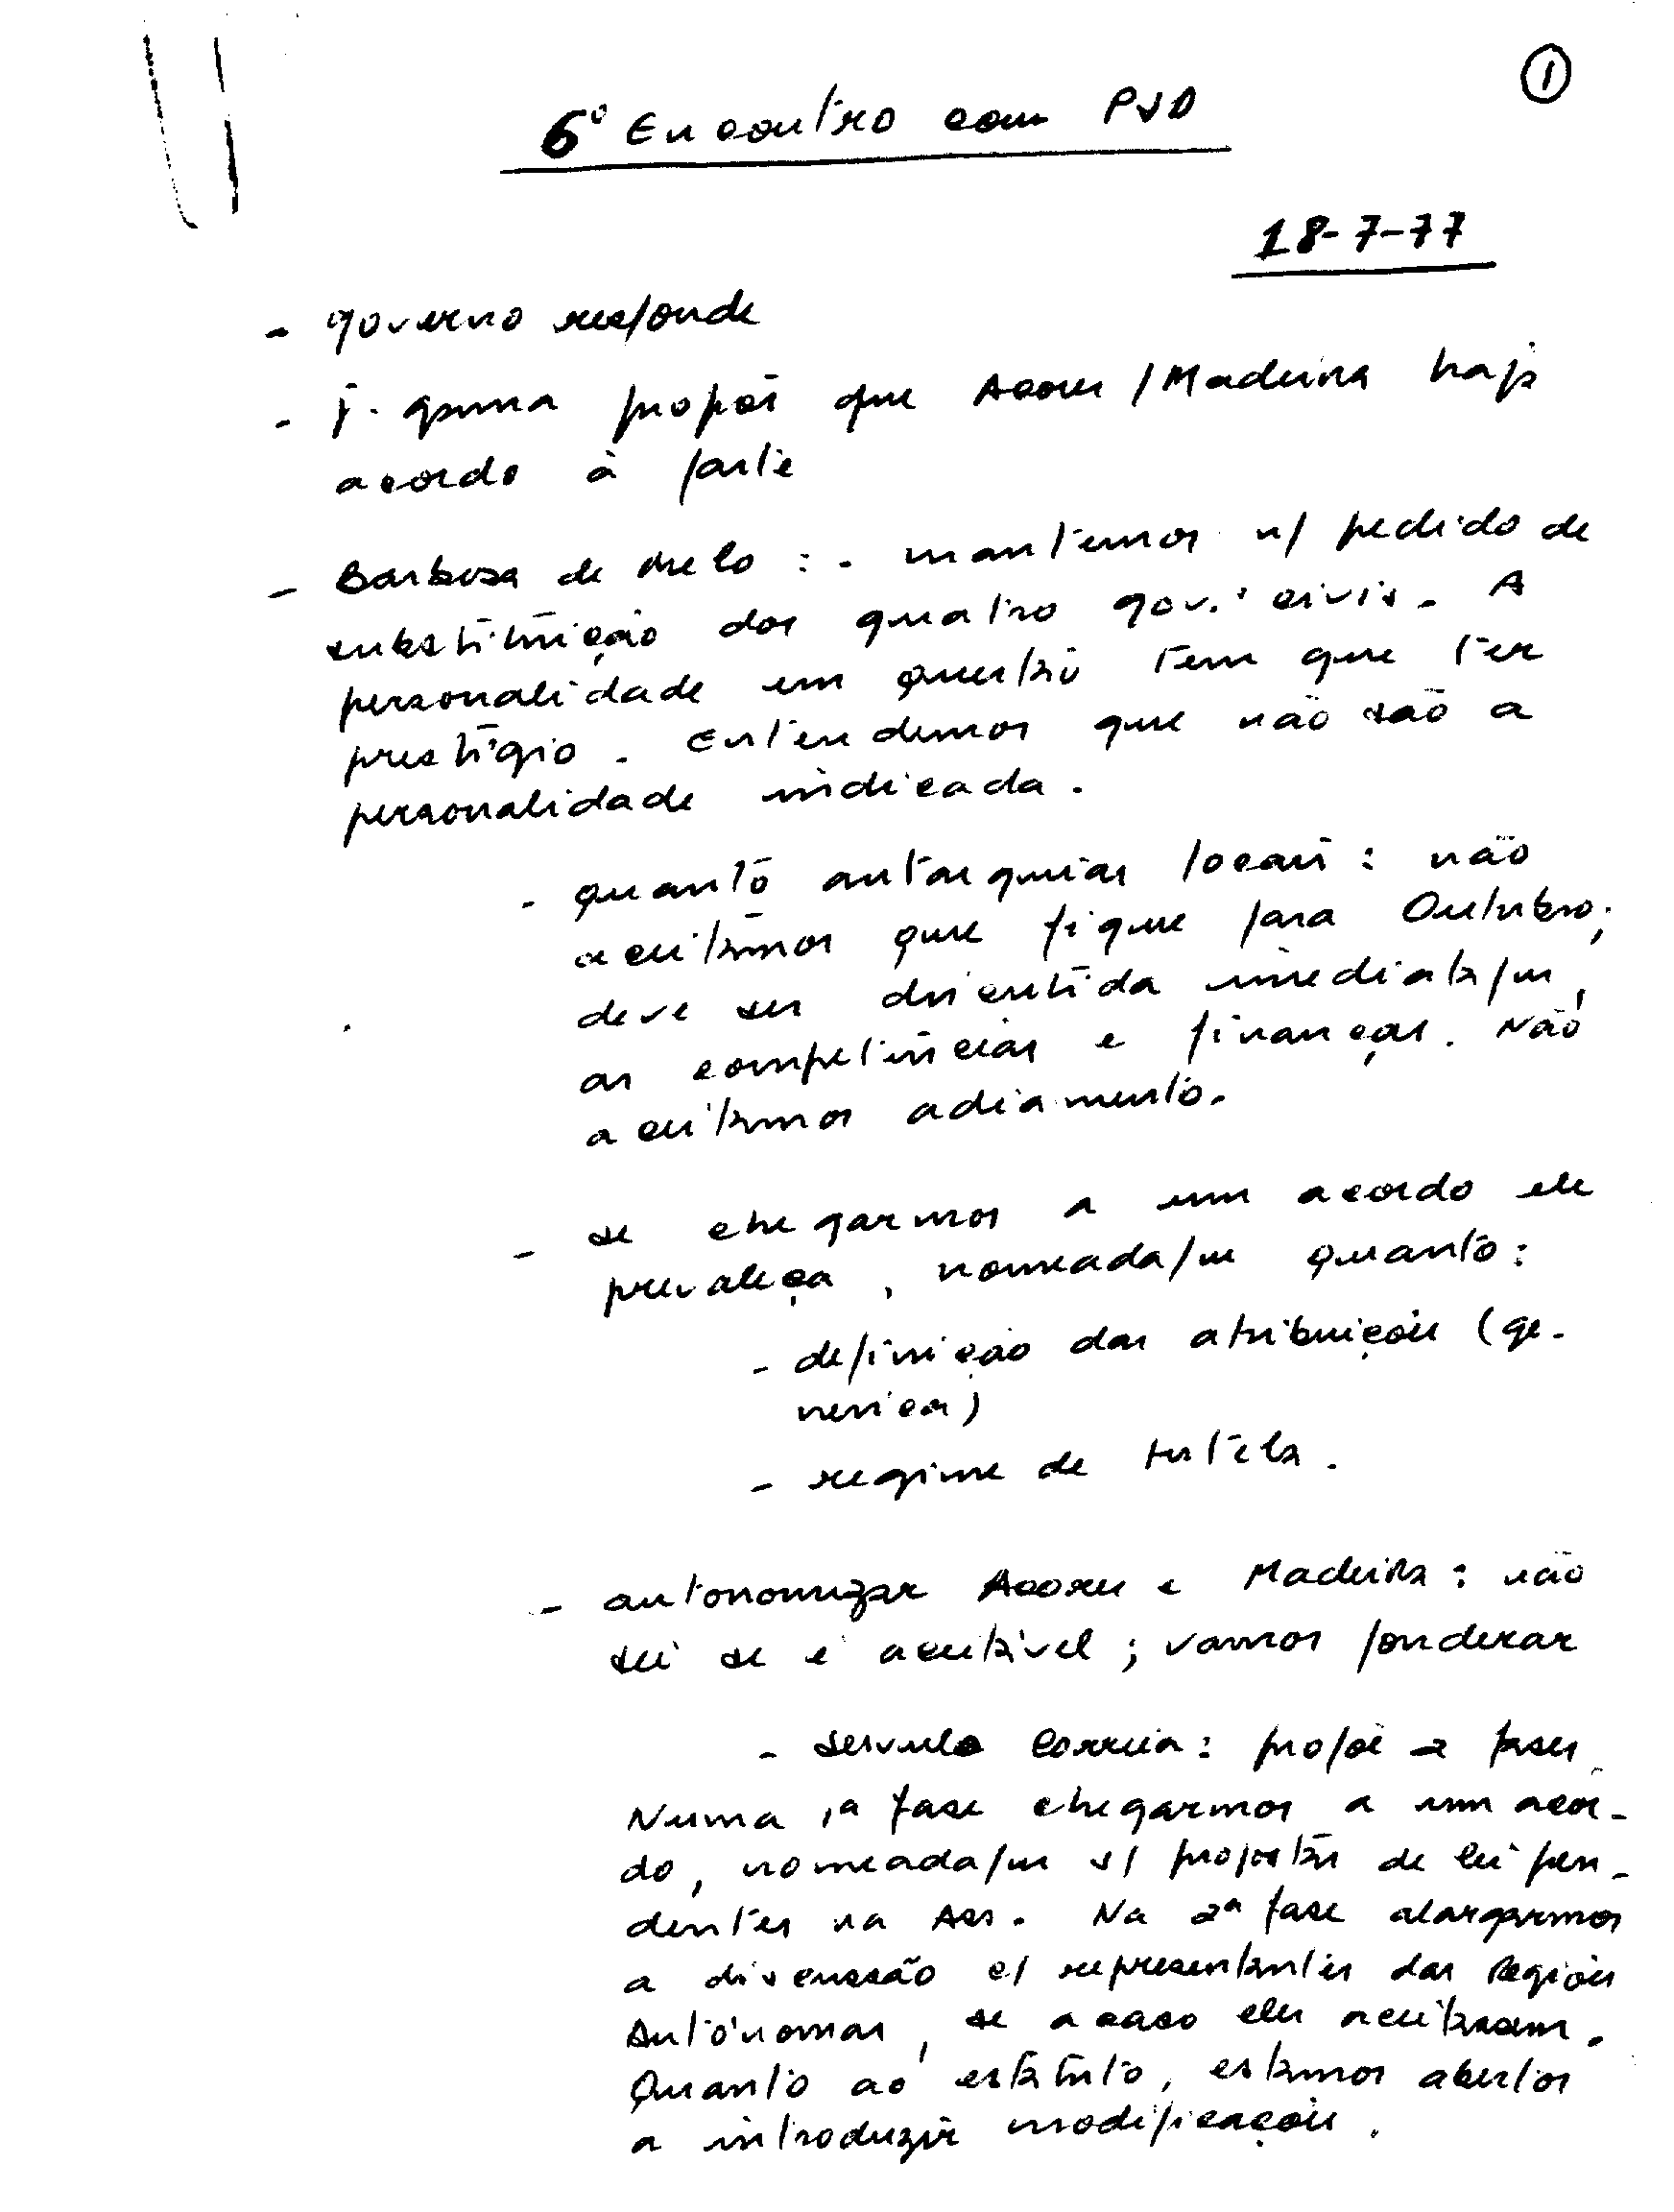 ①
6º Encontro com PSD
18-7-77
- governo responde
- J. Gama propôs que Açores / Madeira haja
acordo à parte
- Barbosa de Melo : - mantemos n/ pedido de
substituição dos quatro gov.s civis. A
personalidade em questão tem que ter
prestígio. Entendemos que não são a
personalidade indicada.
- quanto autarquias locais : não
aceitamos que fique para Outubro;
deve ser discutida imediata/m,
as competências e finanças. Não
aceitamos adiamento.
- se chegarmos a um acordo ele
prevaleça, nomeada/m quanto :
- definição das atribuições (ge-
nerica)
- regime de tutela.
- autonomizar Açores e Madeira : não
sei se é aceitável ; vamos ponderar
- Servulo Correia : propõe 2 fases.
Numa 1ª fase chegarmos a um acor-
do, nomeada/m s/ propostas de lei pen-
dentes na Ass. Na 2ª fase alargarmos
a discussão c/ representantes das Regiões
Autónomas, se acaso eles aceitassem.
Quanto ao estatuto, estamos abertos
a introduzir modificações.